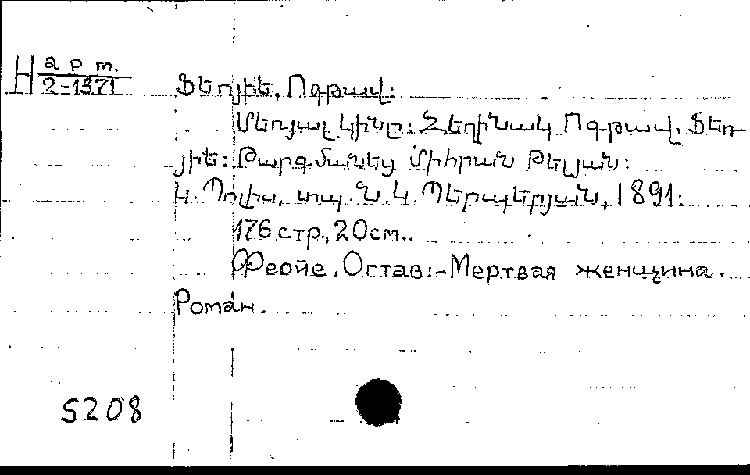 Н арт.
2-1971
Ֆեոյիե, Ոգթավ:
Մեռյալ կինը: Հեղինակ Ոգթավ. Ֆեո-
յիե: Թարգմանեց Միհրան Թելյան:
Կ. Պոլիս, տպ. Ն. Կ. Պերպերյան, 1891.
176 стр., 20см..
Феойе, Остав:-Мертвая женщина.
Роман.
5208